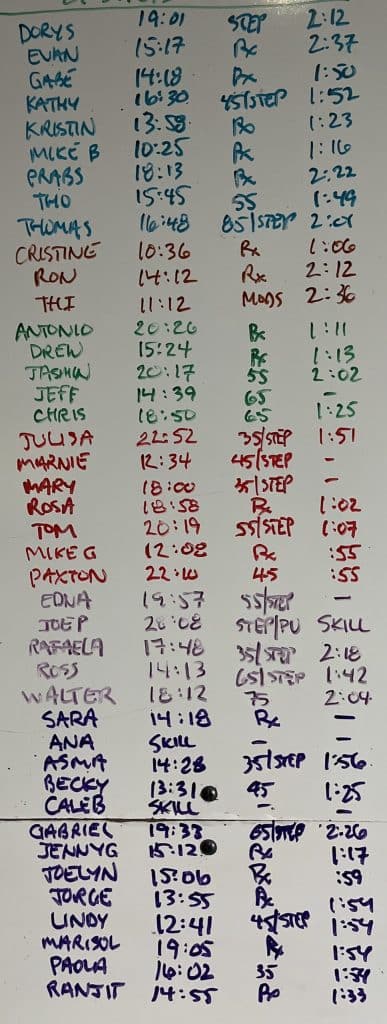 DORYS 19:01 STEP 2:12
EVAN 15:17 Rx 2:37
GABE 14:18 Rx 1:50
KATHY 16:30 45/STEP 1:52
KRISTIN 13:58 Rx 1:23
MIKE B 10:25 Rx 1:16
PRABS 18:13 Rx 2:22
THO 15:45 55 1:49
THOMAS 16:48 85/STEP 2:01
CRISTINE 10:36 Rx 1:06
RON 14:12 Rx 2:12
THI 11:12 MODS 2:36
ANTONIO 20:26 Rx 1:11
DREW 15:24 Rx 1:13
JASMIN 20:17 55 2:02
JEFF 14:39 65 -
CHRIS 18:50 65 1:25
JULISA 22:52 35/STEP 1:51
MARNIE 12:34 45/STEP -
MARY 18:00 35/STEP -
ROSA 18:58 Rx 1:02
TOM 20:19 55/STEP 1:07
MIKE G 12:02 Rx :55
PAXTON 22:10 45 :55
EDNA 19:57 55/STEP -
JOE P 28:08 STEP/PU SKILL
RAFAELA 17:48 35/STEP 2:18
ROSS 14:13 65/STEP 1:42
WALTER 18:12 75 2:04
SARA 14:18 Rx -
ANA SKILL - -
ASMA 14:28 35/STEP 1:56
BECKY 13:31 45 1:25
CALEB SKILL - -
GABRIEL 19:33 65/STEP 2:26
JENNY G 15:12 Rx 1:17
JOELYN 15:06 Rx :59
JORGE 13:55 Rx 1:54
LINDY 12:41 45/STEP 1:54
MARISOL 19:05 Rx 1:54
PAOLA 16:02 35 1:54
RANJIT 14:55 Rx 1:33